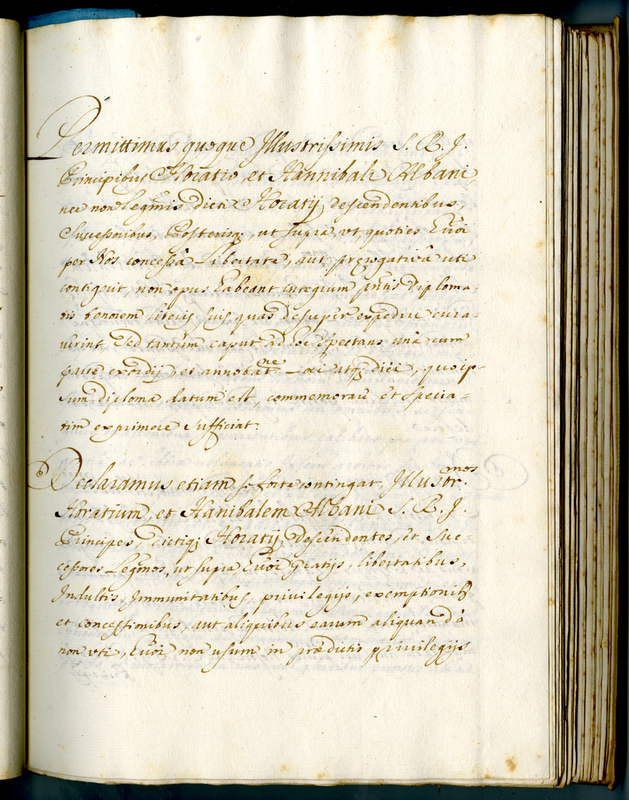 Permittimus quoque Illustrissimis S. R. J.
Principibus Horatio, et Hannibali Albani,
nec non legmis dicti Horatij descendentibus,
Successoribus, Posterisq; ut supra, vt quoties Euoi
per Nos concessâ Libertate, aut prerogativâ uti
contigerit, non opus habeant integrum pntis diploma-
tis tenorem literis suis, quas desuper expediri cura-
verint Sed tantum caput ad hoc spectans unà cum
parte exordij, et annobatne Loci utq; diei, quo ip-
sum diploma datum est, commemorari, et specia-
tim exprimere sufficiat.
Declaramus etiam si forte contingat, Illustr.mos
Horatium, et Hanibalem Albani S. R. J.
Principes, dictiq; Horatij descendentes, et Suc-
cessores Legmos, ut supra Euoi Gratijs, libertatibus,
Indultis, Immunitatibus, privilegijs, exemptionib
et concessionibus, aut aliquibus earum aliquando
non vti, Euoi non usum in prædictis privilegijs